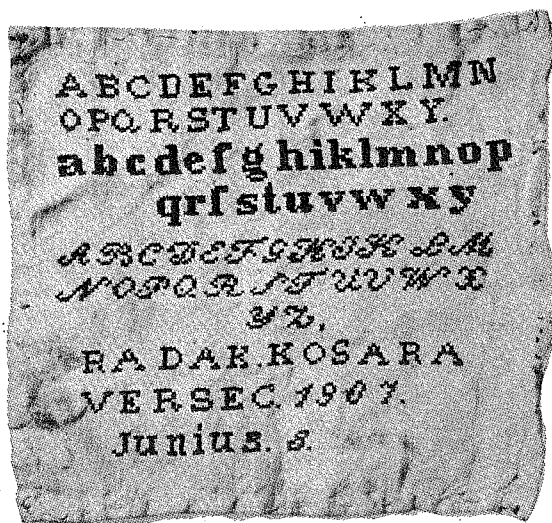 ABCDEFGHIKLMN
OPQRSTUVWXY.
abcdefghiklmnop
qrſstuvwxy
ABCDEFGHIKLM
NOPQRSTUVWX
YZ,
RADAK.KOSARA
VERSEC.1907.
Junius. 8.